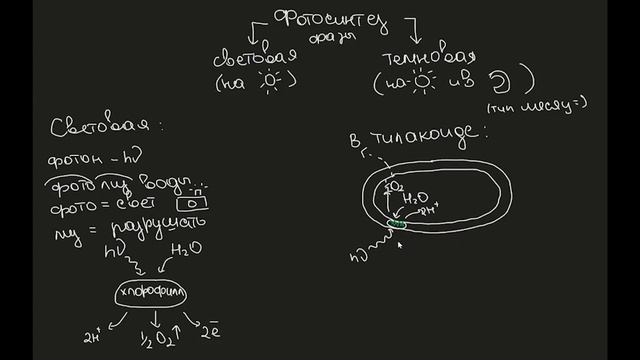 Фотосинтез
фазы
световая
(на )
темновая
(на и в )
(тип месяц =)
Световая:
фотон - hν
фотолиз воды
фото = свет
лиз = разрушать
hν
H₂O
хлорофилл
2H⁺
½ O₂ ↑
2e̅
В тилакоиде:
O₂
H₂O
2H⁺
hν